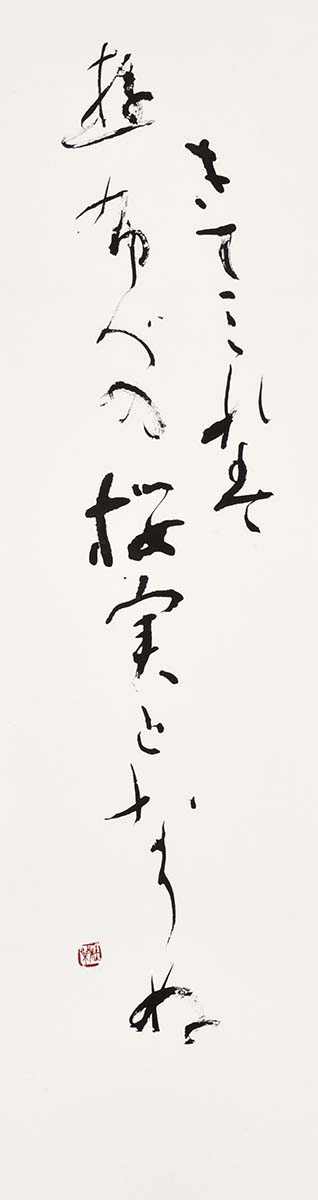 きてみれは
遊布べの桜実となりぬ